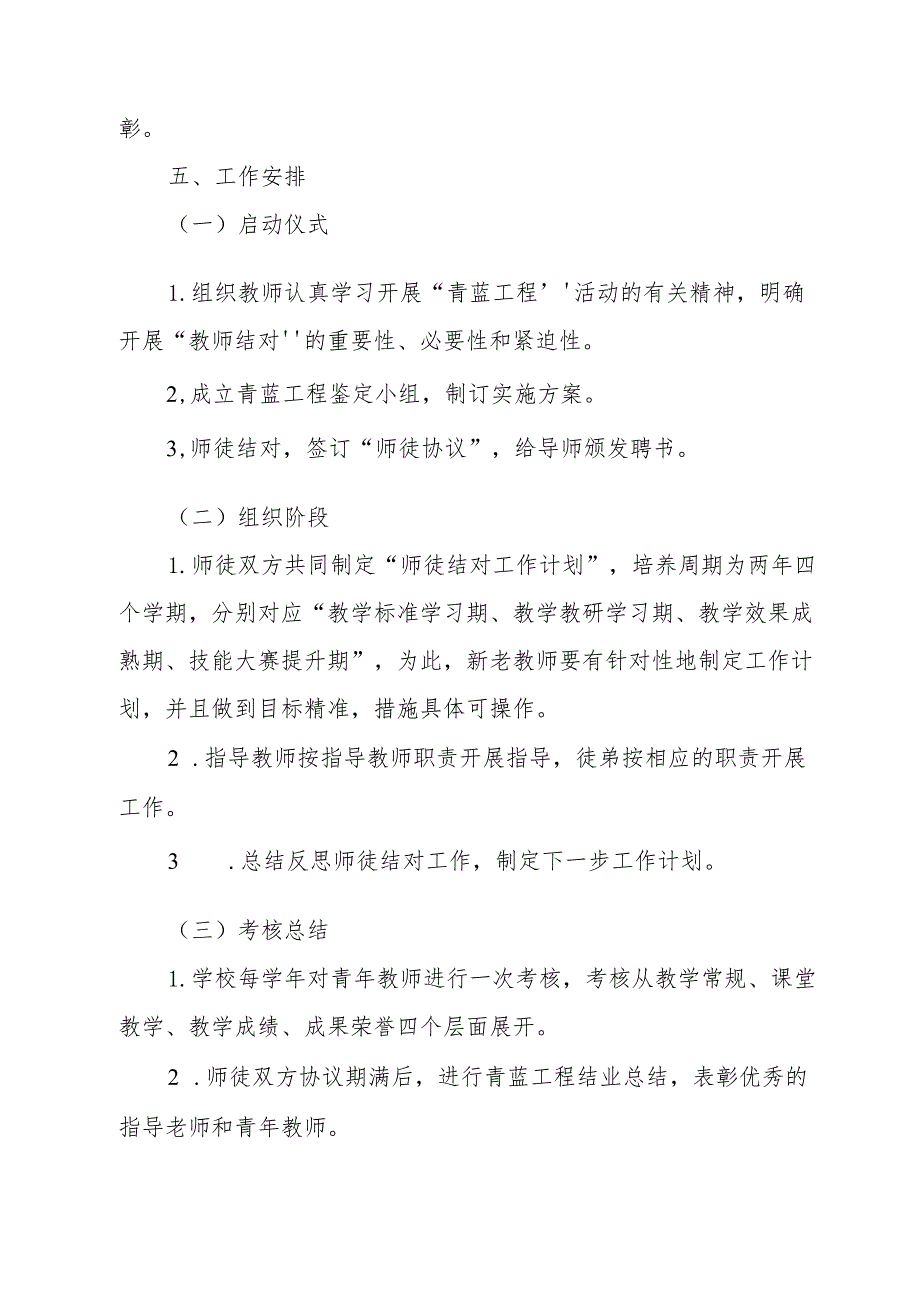 彰。
五、工作安排
（一）启动仪式
1.组织教师认真学习开展“青蓝工程’'活动的有关精神，明确
开展“教师结对''的重要性、必要性和紧迫性。
2,成立青蓝工程鉴定小组，制订实施方案。
3,师徒结对，签订“师徒协议”，给导师颁发聘书。
（二）组织阶段
1.师徒双方共同制定“师徒结对工作计划”，培养周期为两年四
个学期，分别对应“教学标准学习期、教学教研学习期、教学效果成
熟期、技能大赛提升期”，为此，新老教师要有针对性地制定工作计
划，并且做到目标精准，措施具体可操作。
2 .指导教师按指导教师职责开展指导，徒弟按相应的职责开展
工作。
3 .总结反思师徒结对工作，制定下一步工作计划。
（三）考核总结
1.学校每学年对青年教师进行一次考核，考核从教学常规、课堂
教学、教学成绩、成果荣誉四个层面展开。
2 .师徒双方协议期满后，进行青蓝工程结业总结，表彰优秀的
指导老师和青年教师。